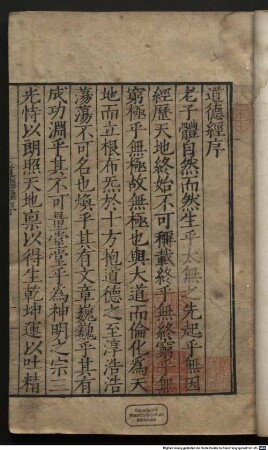 道德經序
老子體自然而然生乎太無之先起乎無因
經歷天地終始不可稱載終乎無終窮乎無
窮極乎無極故無極也與大道而倫化為天
地而立根布炁於十方抱道德之至淳浩浩
蕩蕩不可名也煥乎其有文章巍巍乎其有
成功淵乎其不可量堂堂乎為神明之宗三
光恃以朗照天地稟以得生乾坤運以吐精